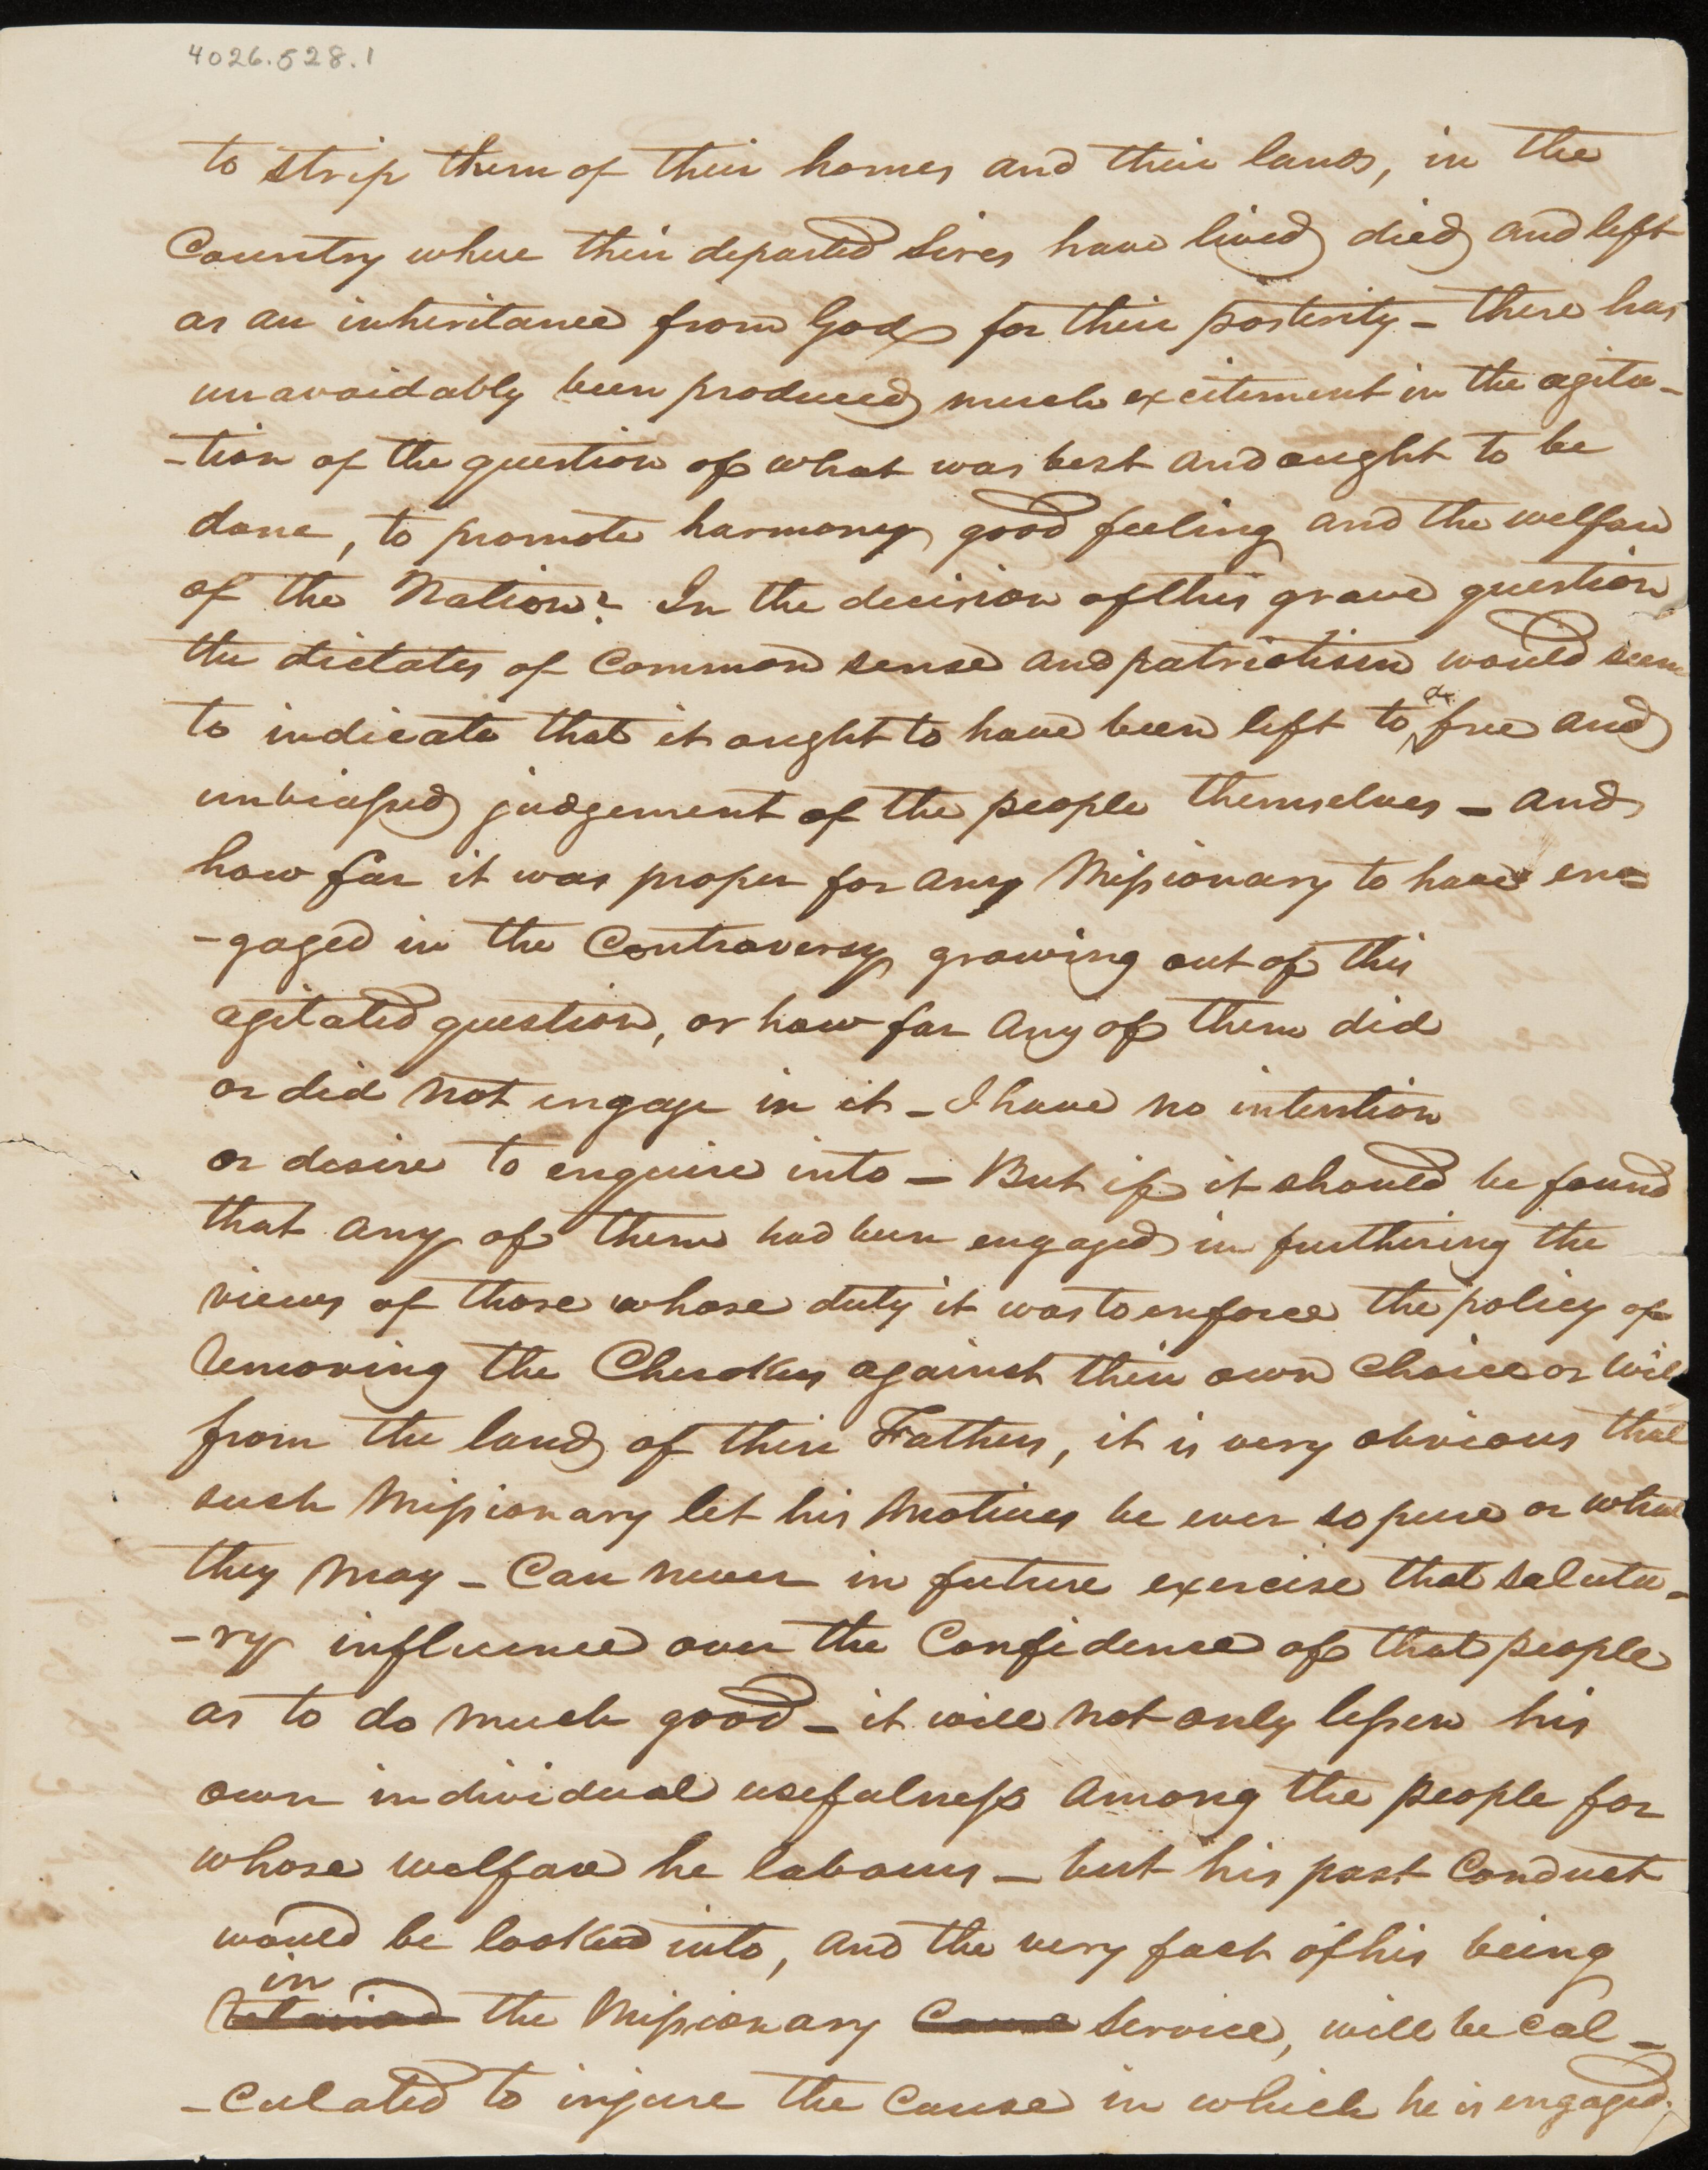 4026.528.1
to strip them of their homes and their lands, in the
Country where their departed Sires have lived died and left
as an inheritance from God for their posterity - there has
unavoidably been produced much excitement in the agita-
-tion of the question of what was best and ought to be
done, to promote harmony good feeling and the welfare
of the Nation? In the decision of this grave question
the dictates of common sense and patriotism would seem
to indicate that it ought to have been left to a free and
unbiassed judgement of the people themselves - and
how far it was proper for any Missionary to have en-
-gaged in the Controversy growing out of this
agitated question, or how far any of them did
or did not engage in it - I have no intention
or desire to enquire into - But if it should be found
that any of them had been engaged in furthering the
views of those whose duty it was to enforce the policy of
Removing the Cherokees against their own Choice or Will
from the land of their Fathers, it is very obvious that
such Missionary let his Motives be ever so pure or what
they may - Can never in future exercise that saluta-
-ry influence over the Confidence of that people
as to do much good - it will not only lessen his
own individual usefulness among the people for
whose welfare he labours - but his past Conduct
would be looked into, and the very fact of his being
in
retained the Missionary Cause Service, will be Cal-
-culated to injure the Cause in which he is engaged.